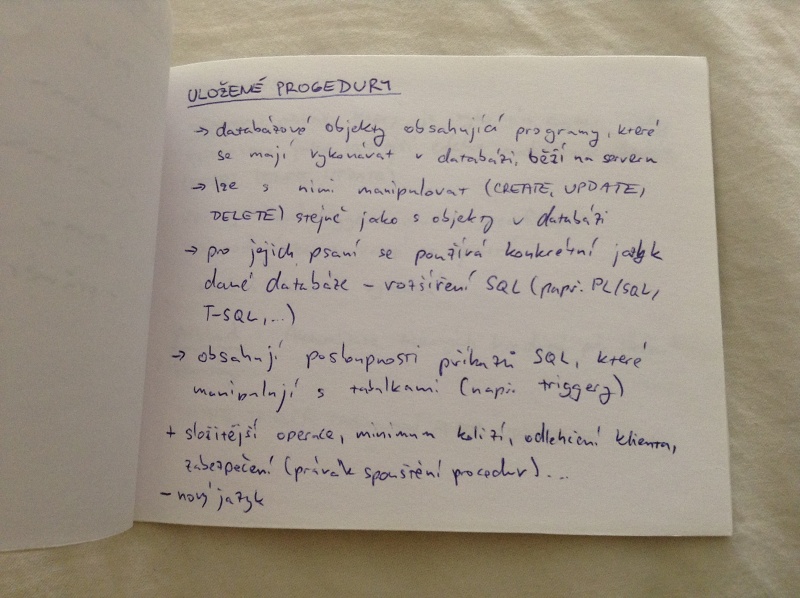 ULOŽENÉ PROCEDURY
→ databázové objekty obsahující programy, které
se mají vykonávat v databázi, běží na serveru
→ lze s nimi manipulovat (CREATE, UPDATE,
DELETE) stejně jako s objekty v databázi
→ pro jejich psaní se používá konkrétní jazyk
dané databáze - rozšíření SQL (např. PL/SQL,
T-SQL,...)
→ obsahují posloupnosti příkazů SQL, které
manipulují s tabulkami (např. triggery)
+ složitější operace, minimum kolizí, odlehčení klienta,
zabezpečení (práva k spouštění procedur)...
- nový jazyk